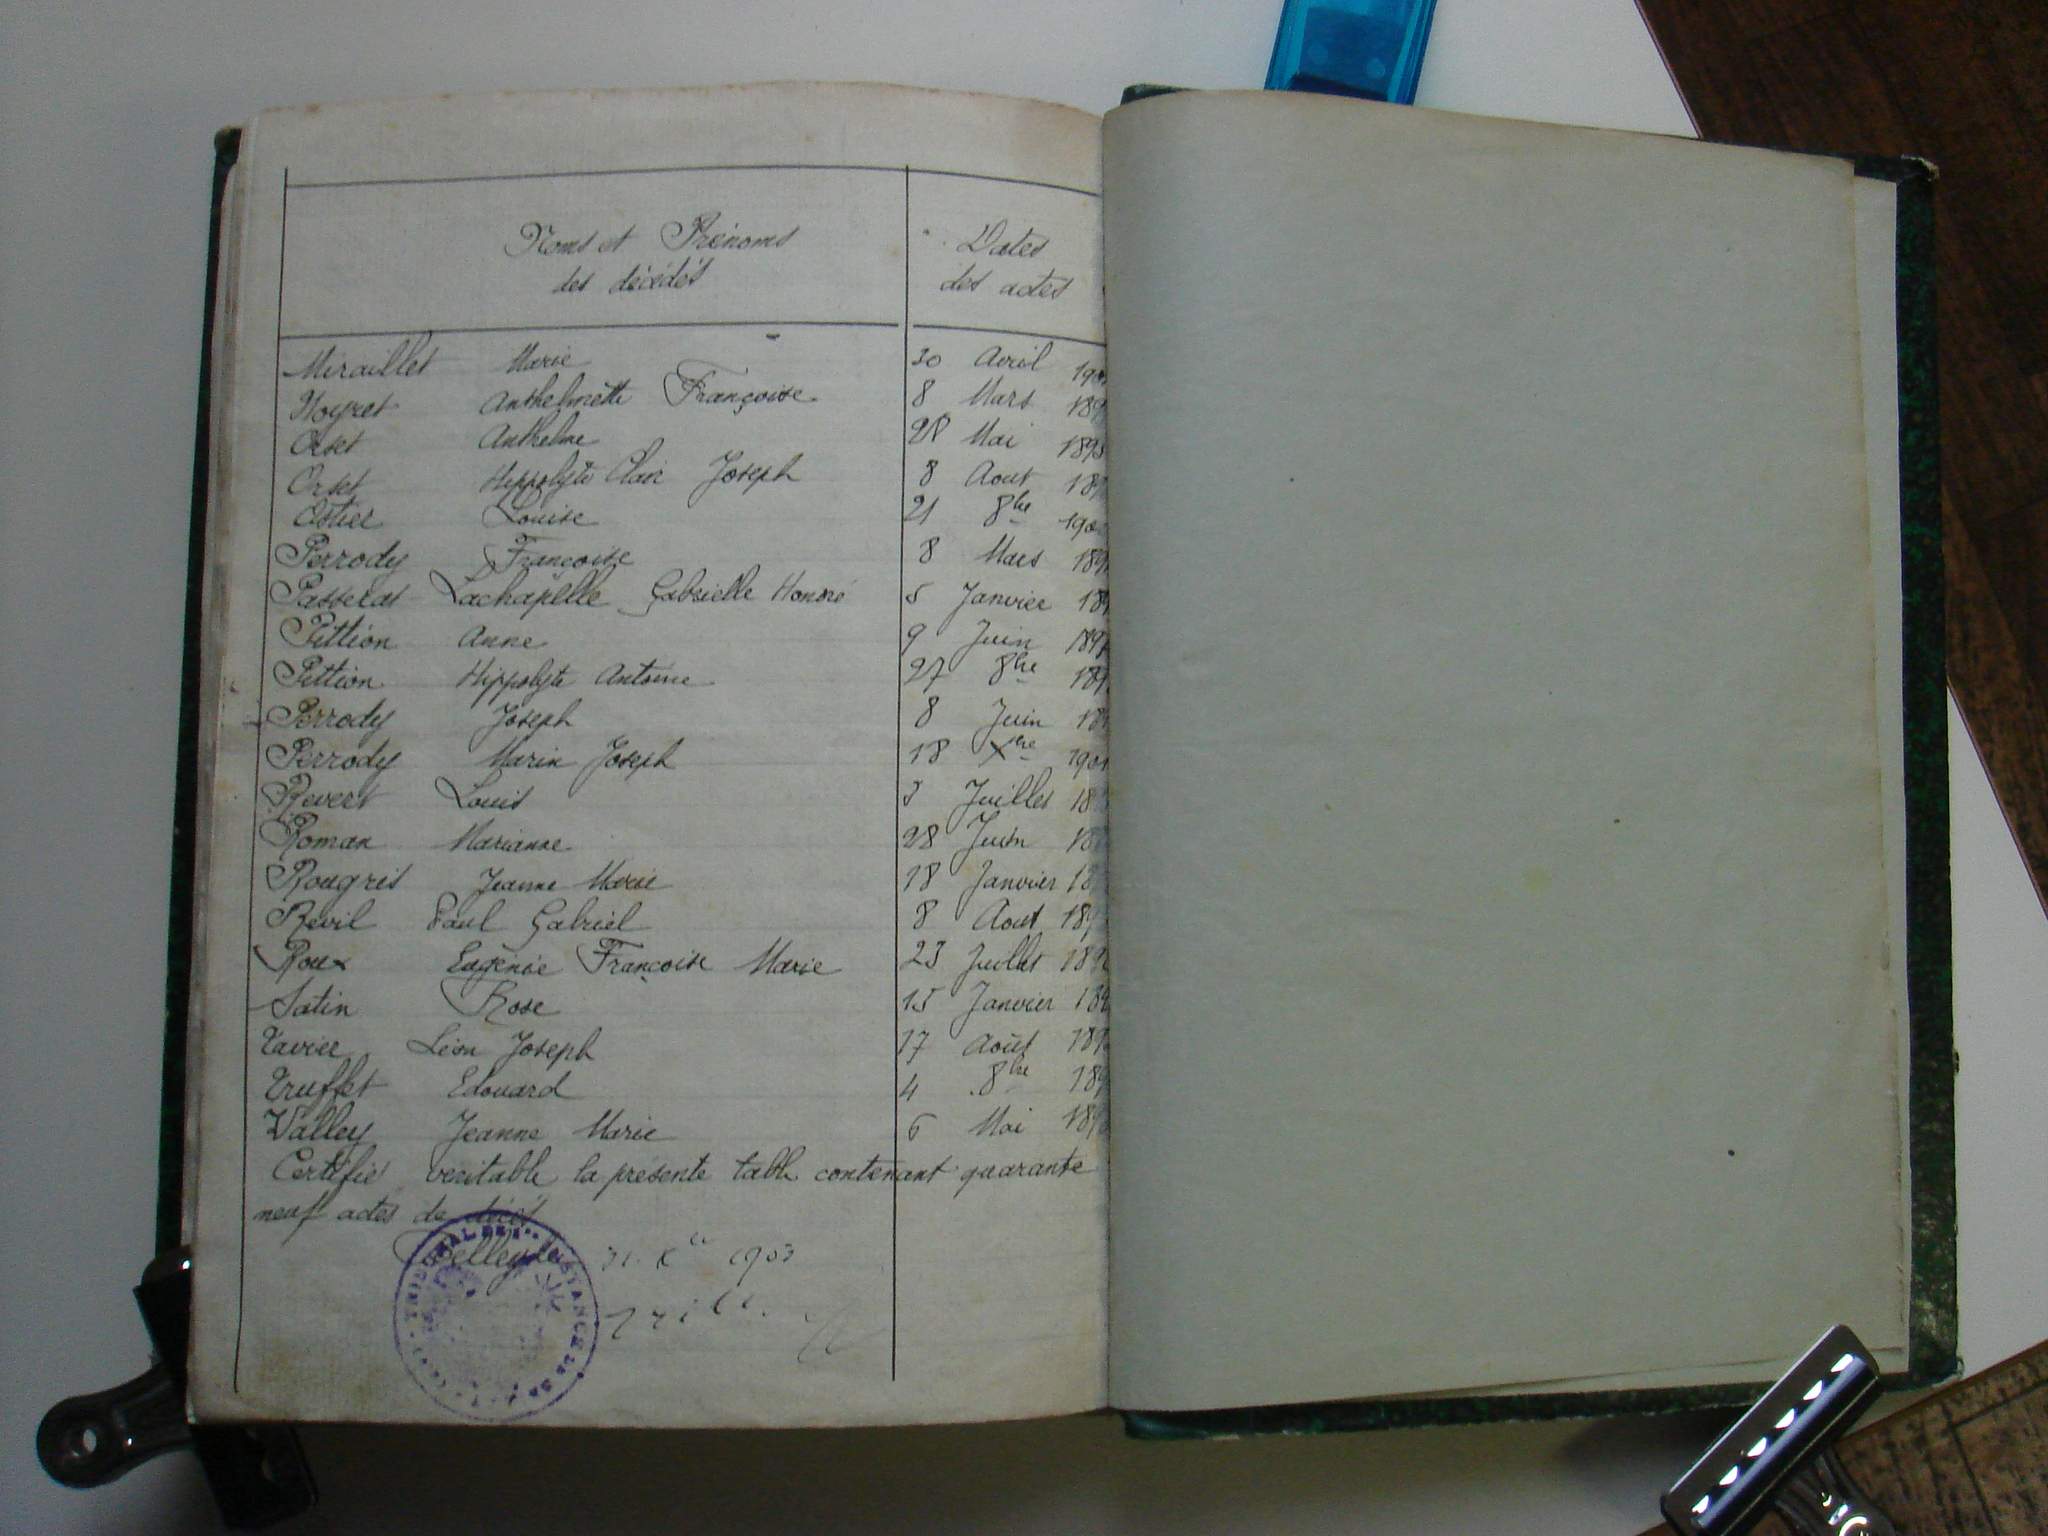 Noms et Prénoms Dates
des décédés des actes
Miraillet Marie 30 Avril
Noyret Anthelmette Françoise 8 Mars
Orset Anthelme 28 Mai
Orset Hippolyte Clair Joseph 8 Aout
Ostier Louise 21 8bre
Perrody Françoise 8 Mars
Passerat Lachapelle Gabrielle Honoré 5 Janvier
Pittion Anne 9 Juin
Pittion Hippolyte Antoine 27 8bre
Perrody Joseph 8 Juin
Perrody Marin Joseph 18 Xbre
Revert Louis 3 Juillet
Roman Marianne 28 Juin
Rougris Jeanne Marie 18 Janvier
Revil Paul Gabriel 8 Aout
Roux Eugénie Françoise Marie 23 Juillet
Satin Rose 15 Janvier
Tavier Léon Joseph 17 Août
Truffet Edouard 4 8bre
Valley Jeanne Marie 6 Mai
Certifié veritable la présente table contenant quarante
neuf actes de décès
Belley le 31 Xbre 1903
TRIBUNAL DE INSTANCE